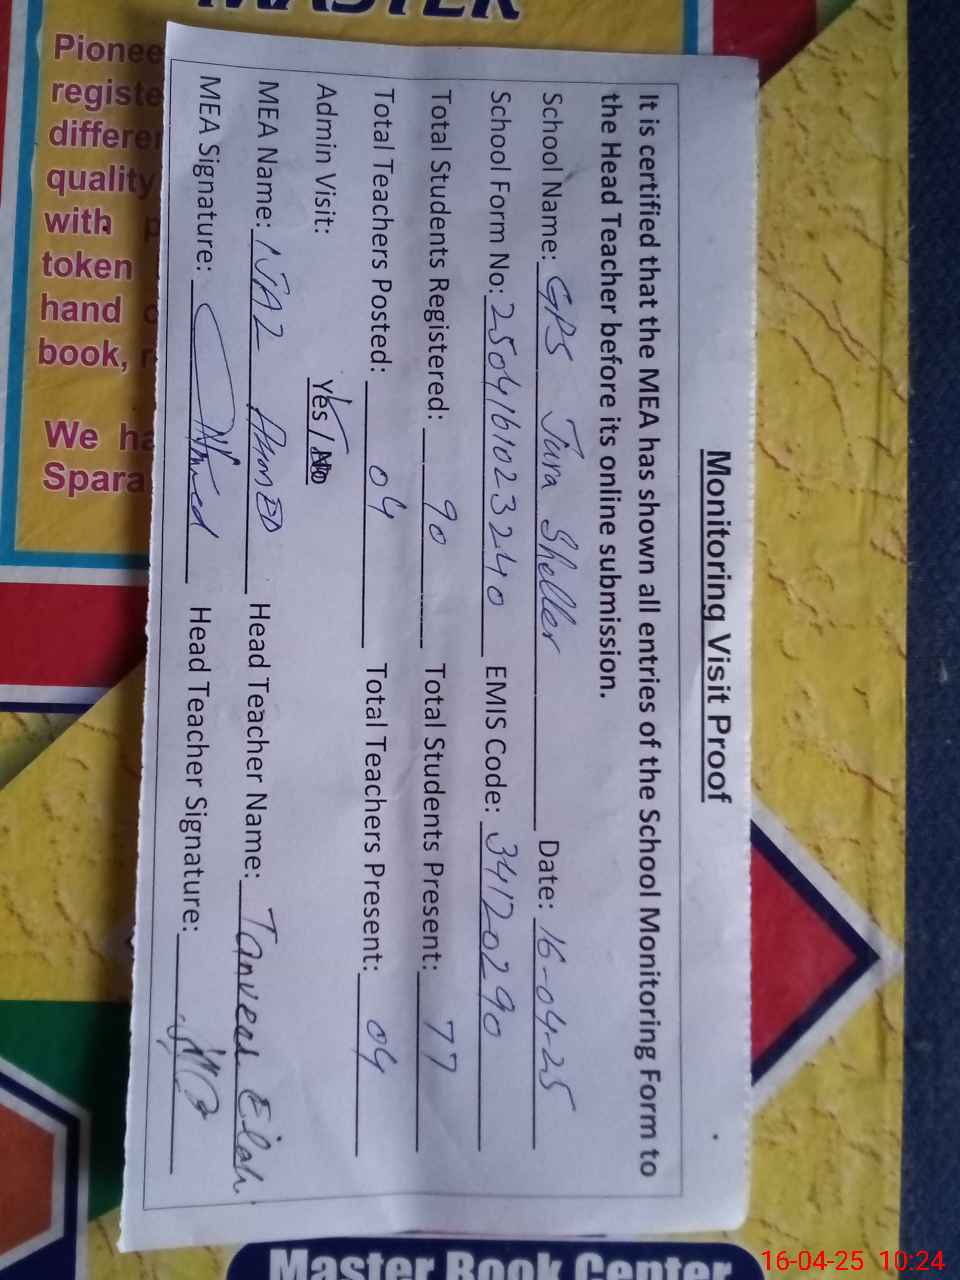 Monitoring Visit Proof
It is certified that the MEA has shown all entries of the School Monitoring Form to
the Head Teacher before its online submission.
School Name: GPS Jura Sheller Date: 16-04-25
School Form No: 25041610233240 EMIS Code: 34120290
Total Students Registered: 90 Total Students Present: 77
Total Teachers Posted: 04 Total Teachers Present: 04
Admin Visit: Yes / No
MEA Name: IJAZ AHMED Head Teacher Name: Tanveer Elahi
MEA Signature: Ahmed Head Teacher Signature:
MASTER
Pionee
registe
differe
quality
with
token
hand
book,
We ha
Spara
Master Book Center
16-04-25 10:24